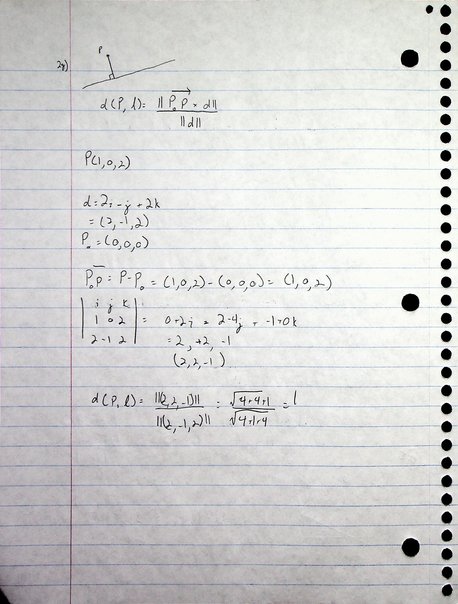 29) P
d(P, l) = ||P₀P × d|| / ||d||
P(1,0,2)
d = 2i - j + 2k
= (2,-1,2)
P₀ = (0,0,0)
P₀P = P - P₀ = (1,0,2) - (0,0,0) = (1,0,2)
| i j k |
| 1 0 2 | = 0+2i, 2-4j, -1+0k
| 2 -1 2 | = 2, +2, -1
(2,2,-1)
d(P, l) = ||(2,2,-1)|| / ||(2,-1,2)|| = √4+4+1 / √4+1+4 = 1